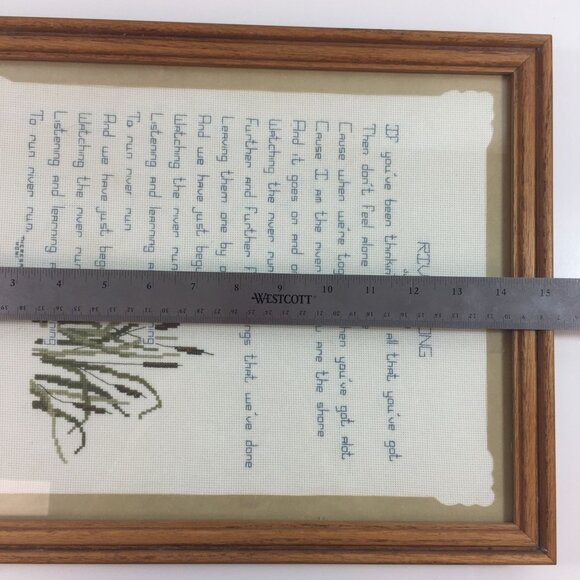 RIV
IF you've been thinkin all that you've got
Then don't feel alone
Cause when we're tog hen you've got alot
Cause I am the river u are the shore
And it goes on and o
Watching the river run
Further and further f ngs that we've done
Leaving them one by o
And we have just begu
Watching the river run
Listening and learning a ning
To run river run
And we have just begu
Watching the river run
Listening and learning a ning
To run river run.
3 4 5 6 7 8 9 10 11 12 13 14 15
WESTCOTT